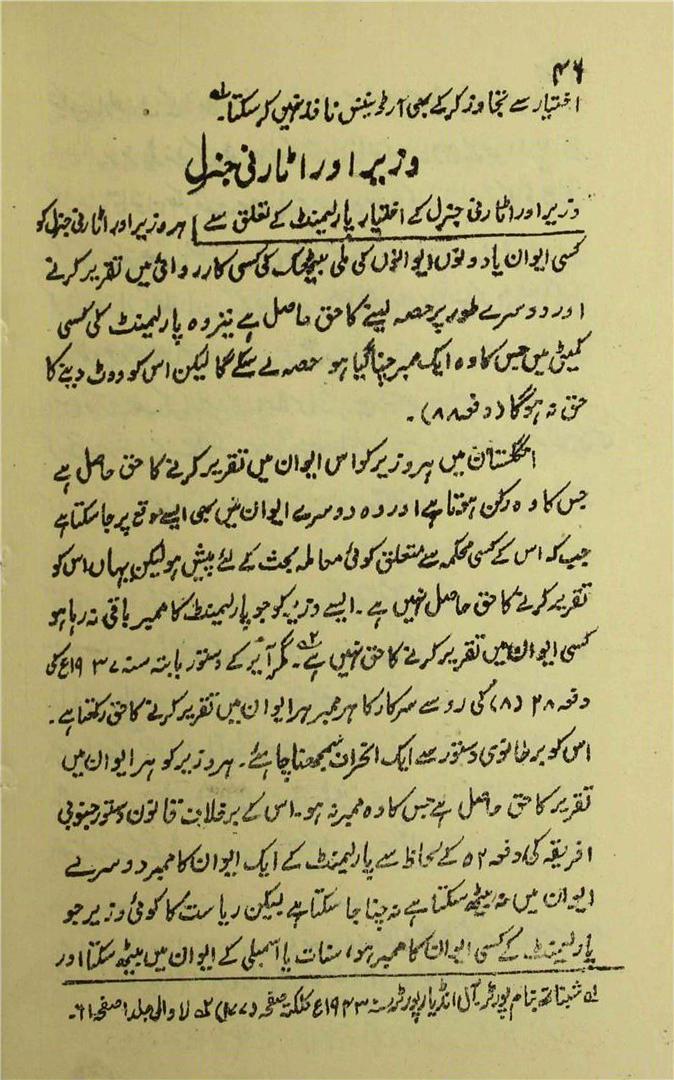 ۴۶
اختیار سے تجاوز کر کے بھی آرڈیننس نافذ نہیں کر سکتا۔ ؎۱
وزیر اور اٹارنی جنرل
وزیر اور اٹارنی جنرل کے اختیار پارلیمنٹ کے تعلق سے | ہر وزیر اور اٹارنی جنرل کو
کسی ایوان یا دونوں ایوانوں کی ملی بیٹھک کی کسی کارروائی میں تقریر کرنے
اور دوسرے طور پر حصہ لینے کا حق حاصل ہے نیز وہ پارلیمنٹ کی کسی
کمیٹی میں جس کا وہ ایک ممبر چنا گیا ہو حصہ لے سکے گا لیکن اس کو ووٹ دینے کا
حق نہ ہوگا (دفعہ ۸۸)۔
انگلستان میں ہر وزیر کو اس ایوان میں تقریر کرنے کا حق حاصل ہے
جس کا وہ رکن ہوتا ہے اور وہ دوسرے ایوان میں بھی ایسے موقع پر جا سکتا ہے
جب کہ اس کے کسی محکمہ سے متعلق کوئی معاملہ بحث کے لئے پیش ہو لیکن یہاں اس کو
تقریر کرنے کا حق حاصل نہیں ہے ۔ ایسے وزیر کو جو پارلیمنٹ کا ممبر باقی نہ رہا ہو
کسی ایوان میں تقریر کرنے کا حق نہیں ہے ؎۲۔ مگر آیر کے دستور بابتہ سنہ ۱۹۳۷ع کی
دفعہ ۲۸ (۸) کی رو سے سرکار کا ہر ممبر ہر ایوان میں تقریر کرنے کا حق رکھتا ہے ۔
اس کو برطانوی دستور سے ایک انحراف سمجھنا چاہئے ۔ ہر وزیر کو ہر ایوان میں
تقریر کا حق حاصل ہے جس کا وہ ممبر نہ ہو ۔ اس کے برخلاف قانون دستور جنوبی
افریقہ کی دفعہ ۵۲ کے لحاظ سے پارلیمنٹ کے ایک ایوان کا ممبر دوسرے
ایوان میں نہ بیٹھ سکتا ہے نہ چنا جا سکتا ہے لیکن ریاست کا کوئی وزیر جو
پارلیمنٹ کے کسی ایوان کا ممبر ہو، سنات یا اسمبلی کے ایوان میں بیٹھ سکتا اور
؎۱ شبناتھ بنام پورٹر۔ آل انڈیا رپورٹر سنہ ۱۹۴۳ع کلکتہ صفحہ (۳۷۷) ؎۲ لاوالی جلد ۱ صفحہ ۶۱۔